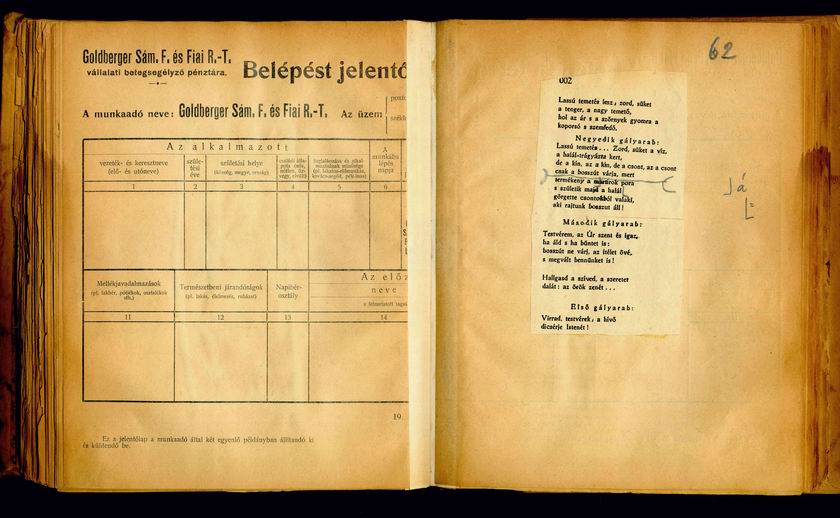 Goldberger Sám. F. és Fiai R.-T.
vállalati betegsegélyző pénztára.
Belépést jelentő
A munkaadó neve: Goldberger Sám. F. és Fiai R.-T. Az üzem
Az alkalmazott
vezeték- és keresztneve
(elő- és utóneve)
szüle-
tési
éve
születési helye
(község, megye, ország)
családi álla-
pota (nős,
nőtlen, öz-
vegy, elvált)
foglalkozása és alkal-
mazásának minősége
A
munkába
lépés
napja
1 2 3 4 5 6
Mellékjavadalmazások
(pl. lakbér, pótlékok, osztalékok
stb.)
Természetbeni járandóságok
(pl. lakás, élelmezés, ruházat)
Napibér-
osztály
Az előz
neve
11 12 13 14
19
Ez a jelentőlap a munkaadó által két egyenlő példányban állítandó ki
és küldendő be.
62
002
Lassú temetés lesz, zord, süket
a tenger, a nagy temető,
hol az ár s a szörnyek gyomra a
koporsó s szemfedő.
Negyedik gályarab:
Lassú temetés... Zord, süket a víz,
a halál-trágyázta kert,
de a kín, az a kín, de a csont, az a csont
csak a bosszút várja, mert
termékeny a mártírok pora
s születik majd a halál
görgette csontokból valaki,
aki rajtunk bosszút áll!
Második gályarab:
Testvérem, az Úr szent és igaz,
ha áld s ha büntet is:
bosszút ne várj, az ítélet övé,
s megvált bennünket is!
Hallgasd a szíved, a szeretet
dalát: az örök zenét...
Első gályarab:
Virrad, testvérek, a hívő
dicsérje Istenét!
á